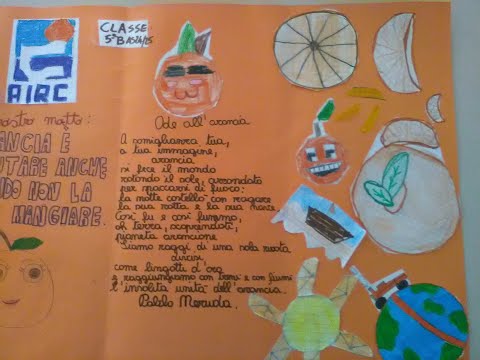 AIRC
CLASSE
5ªB A.S. 24/25
nostro motto:
ANCIA È
UTARE ANCHE
NDO NON LA
MANGIARE.
Ode all'arancia
A somiglianza tua,
a tua immagine,
arancia
si fece il mondo
rotondo il sole, circondato
per spaccarsi di fuoco:
la notte costellò con zagare
la sua rotta e la sua nave.
Così fu e così fummo,
oh terra, scoprendoti,
pianeta arancione.
Siamo raggi di una sola ruota
divisi
come lingotti d'oro
e raggiungiamo con treni e con fiumi
l'insolita unità dell'arancia.
Pablo Neruda.